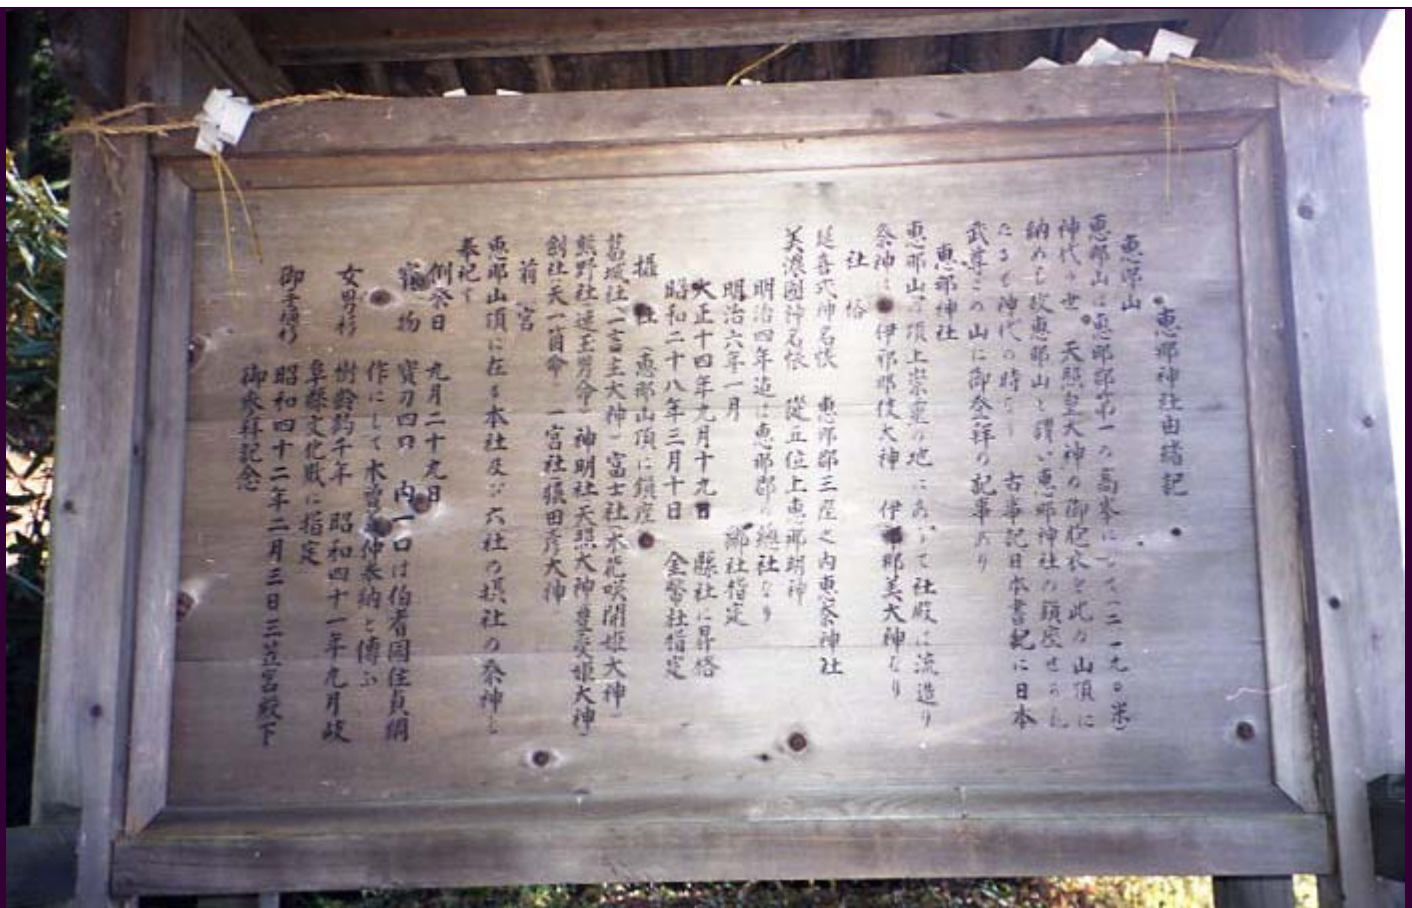 恵那神社由緒記
恵那山
恵那山は恵那郡第一の高峯にして(二一九〇米)
神代の世 天照皇大神の御胞衣を此の山頂に
納めし故恵那山と謂い恵那神社の鎮座せられ
たるも神代の時なり 古事記日本書紀に日本
武尊この山に御登拝の記事あり
恵那神社
恵那山の頂上崇重の地にあって社殿は流造り
祭神は 伊邪那岐大神 伊邪那美大神なり
社格
延喜式神名帳 恵那郡三座之内恵奈神社
美濃國神名帳 従五位上恵那明神
明治四年迄は恵那郡の總社なり
明治六年一月 郷社指定
大正十四年九月十九日 縣社に昇格
昭和二十八年三月十日 金幣社指定
摂社(恵那山頂に鎮座)
葛城社(一言主大神)富士社(木花咲開姫大神)
熊野社(速玉男命)神明社(天照大神豊受姫大神)
剣社(天一箇命)一宮社(猿田彦大神)
前宮
恵那山頂に在る本社及び六社の摂社の祭神を
奉祀す
例祭日 九月二十九日
寳物 寳刀四口 内一口は伯耆國住貞綱
作にして木曽義仲奉納と傳ふ
女男杉 樹齢約千年 昭和四十一年九月岐
阜縣文化財に指定
御手植杉 昭和四十二年二月三日三笠宮殿下
御参拝記念